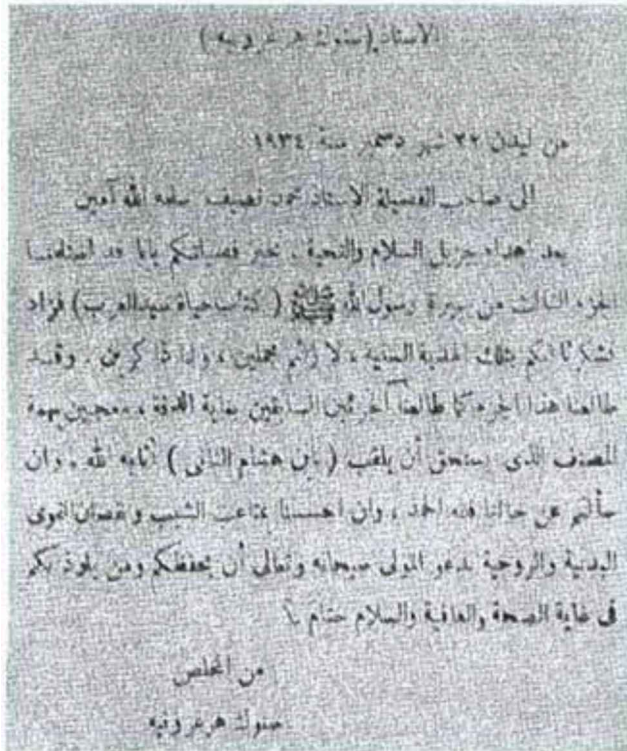 الأستاذ (سنوك هرغرونيه)
من ليدن ٢٢ شهر دسمبر سنة ١٩٣٤
الى صاحب الفضيلة الاستاذ محمد نصيف سلمه الله آمين
بعد اهداء جزيل السلام والتحية . نخبر فضيلتكم بانا قد استلمنا
الجزء الثالث من سيرة رسول الله ﷺ (كتاب حياة سيد العرب) فزاد
تشكرنا لكم بتلك الهدية السنية ، لا زلتم مجملين ، ولنا ذاكرين . وقد
طالعنا هذا الجزء كما طالعنا الجزئين السابقين بغاية الدقة ، معجبين بهمة
المصنف الذى يستحق أن يلقب (بابن هشام الثانى) أثابه الله . وان
سألتم عن حالنا فلله الحمد ، وان احسسنا بمتاعب الشيب ونقصان القوى
البدنية والروحية ندعو المولى سبحانه وتعالى أن يحفظكم ومن يلوذ بكم
فى غاية الصحة والعافية والسلام ختام
من المخلص
سنوك هرغرونيه